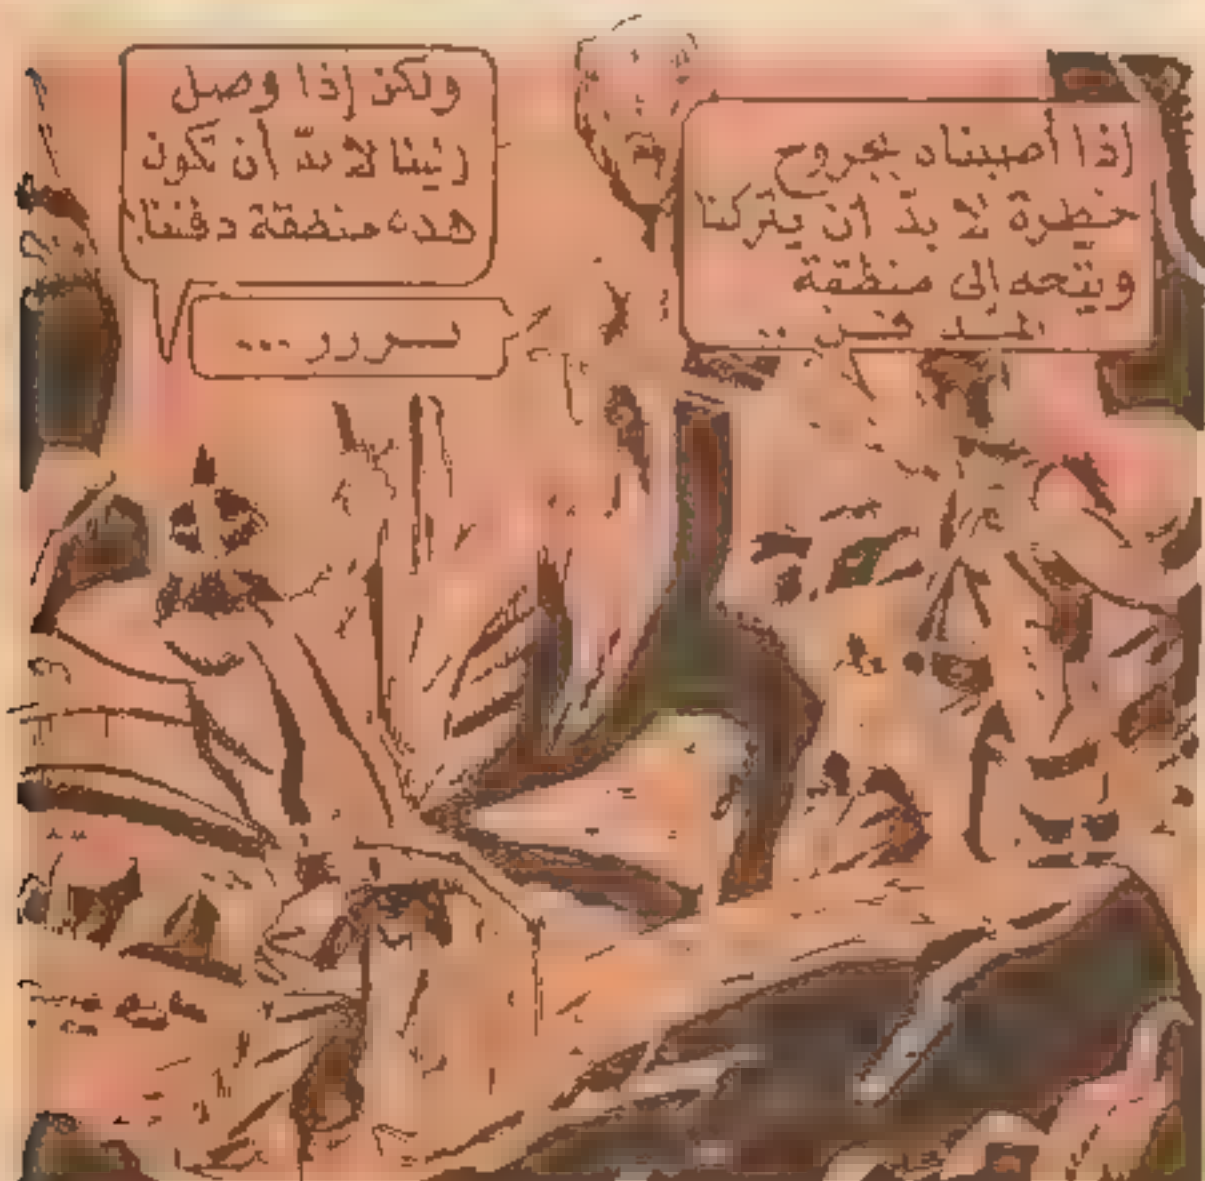 إذا أصبناه بجروح
خطيرة لا بدّ أن يتركنا
ويتجه إلى منطقة
المـــد فـــن ..
ولكن إذا وصل
إلينا لا بدّ أن تكون
هذه منطقة دفننا